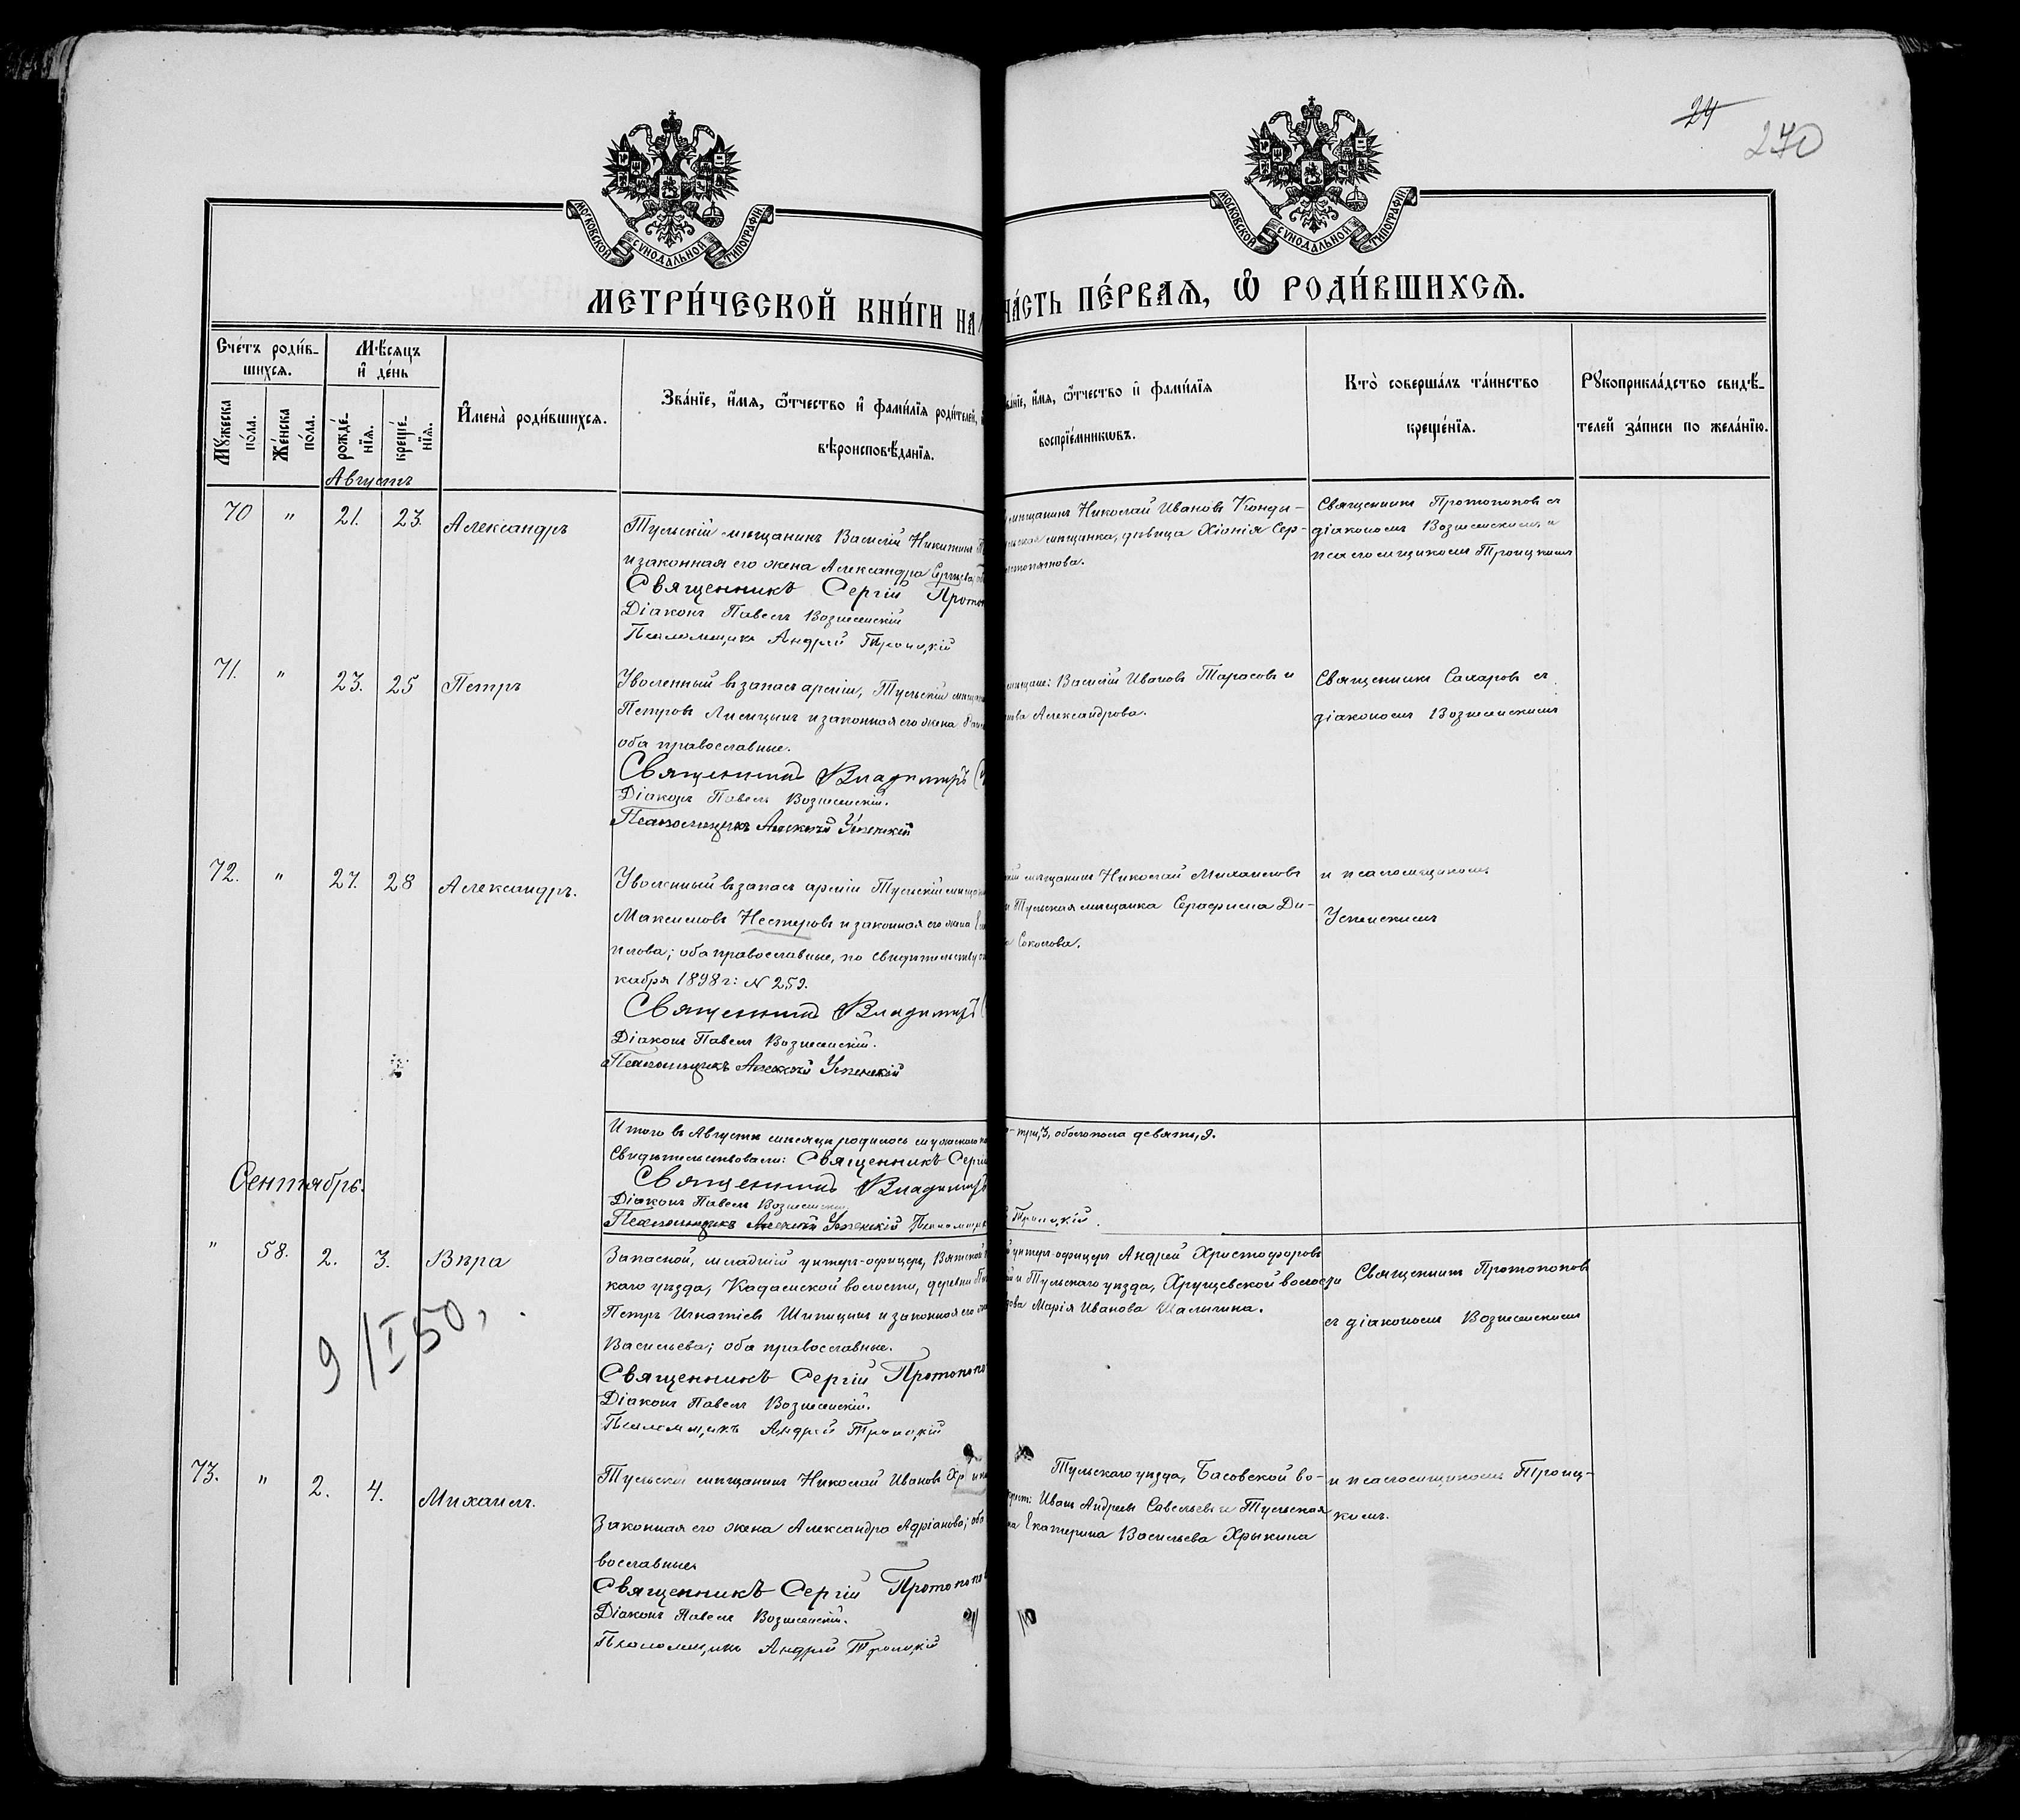 24
270
МОСКОВСКОЙ СУНОДАЛЬНОЙ ТИПОГРАФІИ
МОСКОВСКОЙ СУНОДАЛЬНОЙ ТИПОГРАФІИ
МЕТРИ́ЧЕСКОЙ КНИ́ГИ НА
ЧА́СТЬ ПЕ́РВАѦ, Ѡ҆ РОДИ́ВШИХСѦ.
Сче́тъ роди́в-
шихсѧ.
Мꙋжеска по́ла.
Же́нска по́ла.
Мѣ́сяцъ
и҆ де́нь
рожде́-
нїѧ.
креще́-
нїѧ.
И҆мена̀ роди́вшихсѧ.
Зва́нїе, и҆́мѧ, ѻ҆́тчество и҆ фамѝлїѧ роди́телей,
вѣроисповѣ́данїѧ.
Зва́нїе, и҆́мѧ, ѻ҆́тчество и҆ фамѝлїѧ
воспрїе́мникѡвъ.
Кто̀ соверша́лъ та́инство
креще́нїѧ.
Рꙋкоприкла́дство свидѣ́-
телей за́писи по жела́нїю.
Августъ
70 " 21. 23. Александръ
Тульскій мѣщанинъ Василій Никитинъ
и законная его жена Александра Сергѣева,
Священникъ Сергій Протоп
Діаконъ Павелъ Вознесенскій
Псаломщикъ Андрей Троицкій
мѣщанинъ Николай Ивановъ Конды-
мѣщанка, дѣвица Хіонія Сер-
Священникъ Протопоповъ съ
діакономъ Вознесенскимъ и
псаломщикомъ Троицкимъ
71. " 23. 25 Петръ
Уволенный въ запасъ арміи, Тульскій мѣщан
Петровъ Лисицынъ и законная его жена
оба православные.
Священникъ Владимиръ
Діаконъ Павелъ Вознесенскій.
Псаломщикъ Алексѣй Успенскій
мѣщане: Василій Ивановъ Тарасовъ и
Александрова.
Священникъ Сахаровъ съ
діакономъ Вознесенскимъ
72. " 27. 28 Александръ.
Уволенный въ запасъ арміи Тульскій мѣщан
Максимовъ Нестеровъ и законная его жена
илова; оба православные, по свидѣтельству
кабря 1898 г: № 259.
Священникъ Владимиръ
Діаконъ Павелъ Вознесенскій.
Псаломщикъ Алексѣй Успенскій
мѣщанинъ Николай Михаиловъ
и Тульская мѣщанка Серафима Ди-
Соколова.
и псаломщикомъ
Успенскимъ
Итого въ Августѣ мѣсяцѣ родилось мужескаго по
Свидѣтельствовали: Священникъ Сергій
Священникъ Владимиръ
Діаконъ Павелъ Вознесенскій
Псаломщикъ Алексѣй Успенскій Псаломщик
- три, 3, обоего пола девять, 9.
Троицкій.
Сентябрь.
" 58. 2. 3. Вѣра
Запасной, младшій унтеръ-офицеръ, Вятской
каго уѣзда, Кадамской волости, деревни
Петръ Игнатіевъ Шипицынъ и законная его
Васильева; оба православные.
Священникъ Сергій Протопопо
Діаконъ Павелъ Вознесенскій.
Псаломщикъ Андрей Троицкій
унтеръ-офицеръ Андрей Христофоровъ
и Тульскаго уѣзда, Хрущевской волости
Марія Иванова Шалыгина.
Священникъ Протопоповъ
съ діакономъ Вознесенскимъ
9/I 50,
73. " 2. 4. Михаилъ.
Тульскій мѣщанинъ Николай Ивановъ
Законная его жена Александра Адріанова; оба
вославные
Священникъ Сергій Протопопо
Діаконъ Павелъ Вознесенскій.
Псаломщикъ Андрей Троицкій
Тульскаго уѣзда, Басовской во-
Иванъ Андреевъ Савельевъ и Тульская
Екатерина Васильева Хрыкина
и псаломщикомъ Троиц-
кимъ.